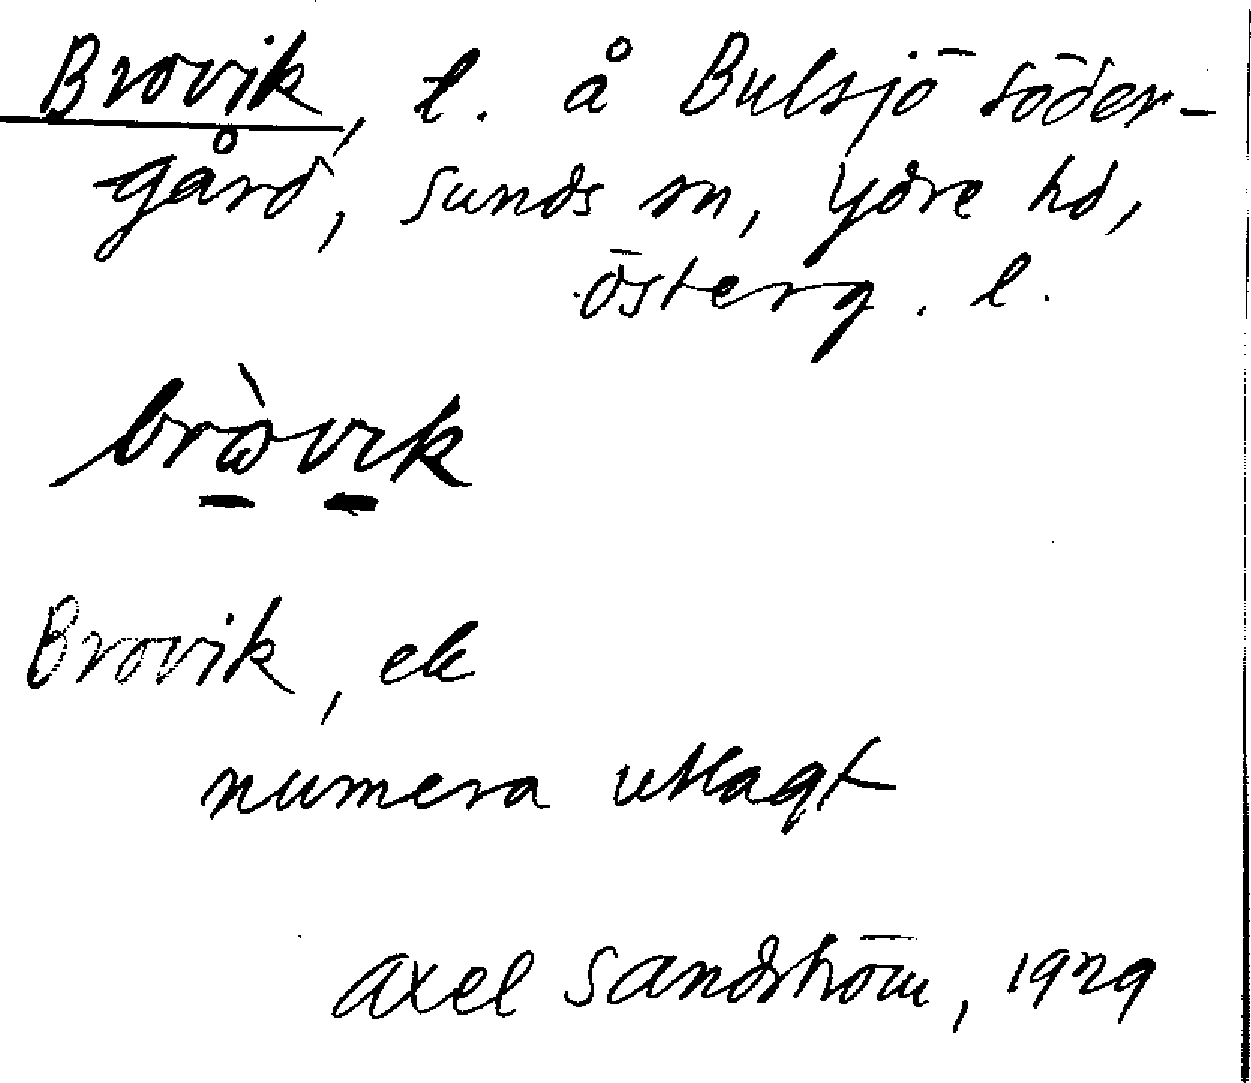 Brovik, l. å Bulsjö Söder-
gård, Sunds sn, Ydre hd,
Österg. l.
brὼvik
Brovik, ek
numera utlagt
Axel Sandström, 1929